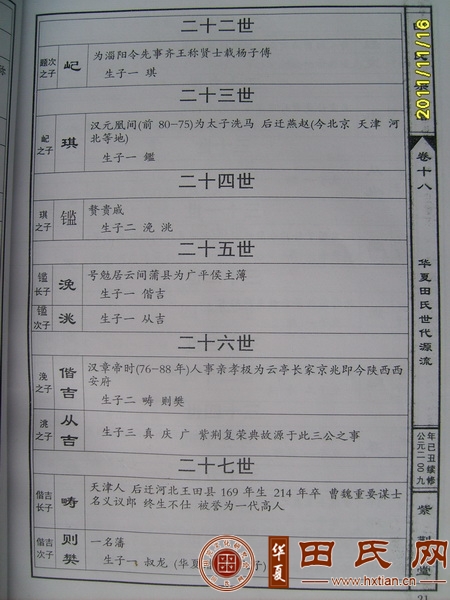 二十二世
之子
屺
为淄阳令先事齐王称贤士载杨子傅
生子一 琪
二十三世
屺
之子
琪
汉元凰间(前 80-75)为太子洗马 后迁燕赵(今北京 天津 河
北等地)
生子一 鑑
二十四世
琪
之子
鑑
赘贵戚
生子二 浼 洮
二十五世
鑑
长子
浼
号勉居云间蒲县为广平侯主薄
生子一 偕吉
鑑
次子
洮
生子一 从吉
二十六世
浼
之子
偕吉
汉章帝时(76-88年)人事亲孝极为云亭长家京兆即今陕西西
安府
生子二 畴 则樊
洮
之子
从吉
生子三 真 庆 广 紫荆复荣典故源于此三公之事
二十七世
偕吉
长子
畴
天津人 后迁河北王田县 169年生 214年卒 曹魏重要谋士
名义议郎 终生不仕 被誉为一代高人
偕吉
次子
则樊
一名藩
生子一 叔龙 (华夏
子)
卷十八
华夏田氏世代源流
公元二00九
年己丑续修
紫荆堂
21
2011/11/16
华夏
田氏网
www.hxtian.cn